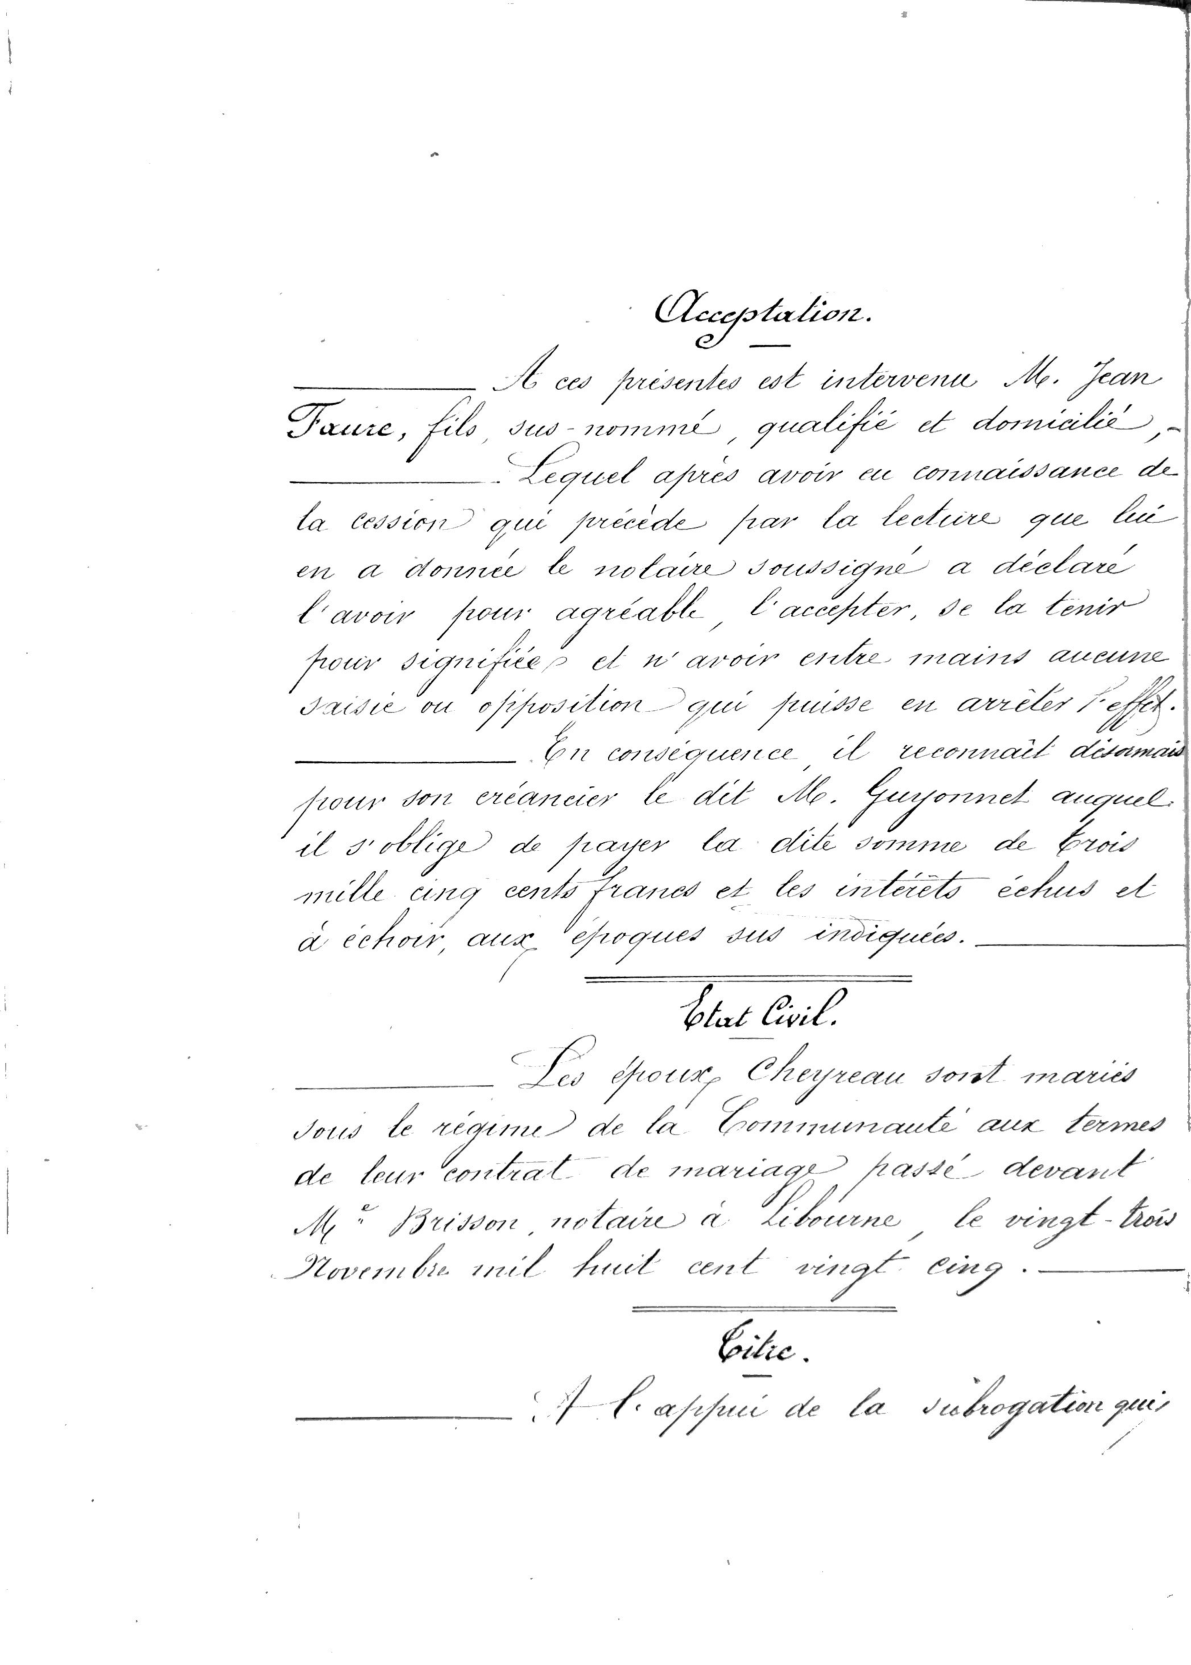 Acceptation.
A ces présentes est intervenu M. Jean
Faure, fils, sus-nommé, qualifié et domicilié,-
Lequel après avoir eu connaissance de
la cession qui précède par la lecture que lui
en a donnée le notaire soussigné a déclaré
l'avoir pour agréable, l'accepter, se la tenir
pour signifiée et n'avoir entre mains aucune
saisie ou opposition qui puisse en arrêter l'effet.
En conséquence, il reconnaît désormais
pour son créancier le dit M. Guyonnet auquel
il s'oblige de payer la dite somme de trois
mille cinq cents francs et les intérêts échus et
à échoir, aux époques sus indiquées.
Etat Civil.
Les époux Cheyreau sont mariés
sous le régime de la Communauté aux termes
de leur contrat de mariage passé devant
Me Brisson, notaire à Libourne, le vingt-trois
Novembre mil huit cent vingt cinq.
Titre.
A l'appui de la subrogation qui